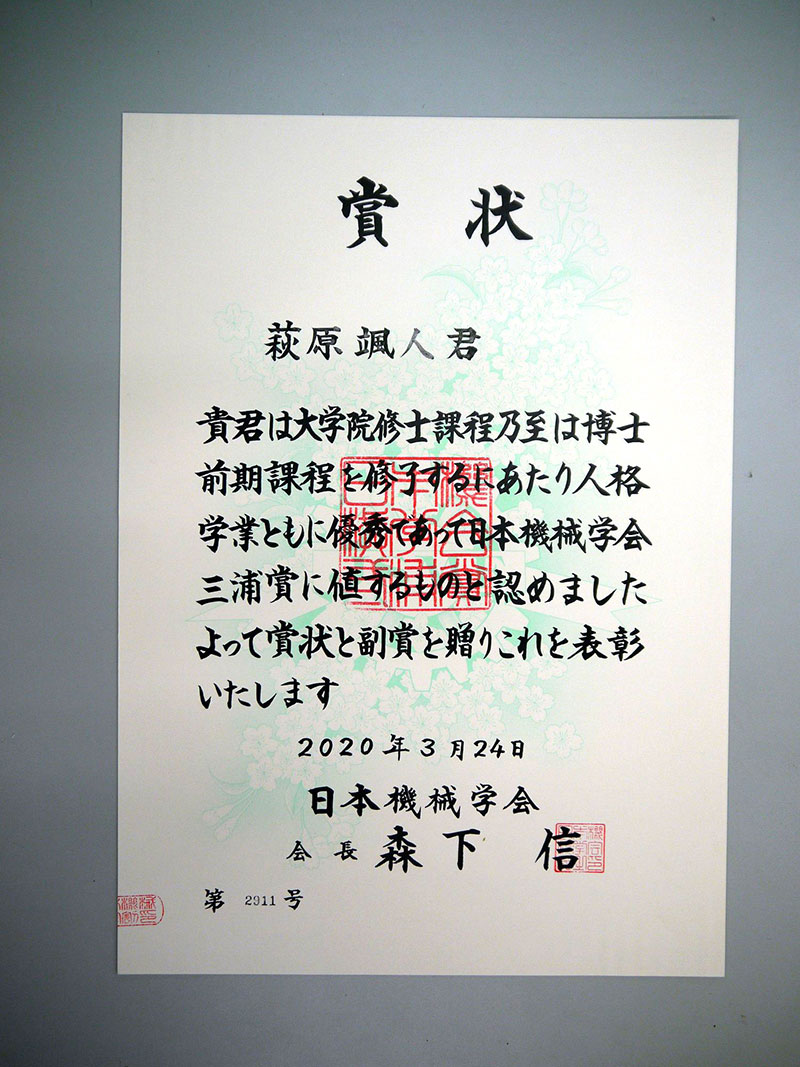 賞状
萩原颯人君
貴君は大学院修士課程乃至は博士
前期課程を修了するにあたり人格
学業ともに優秀であって日本機械学会
三浦賞に値するものと認めました
よって賞状と副賞を贈りこれを表彰
いたします
2020年3月24日
日本機械学会
会長 森下 信
第 2911 号